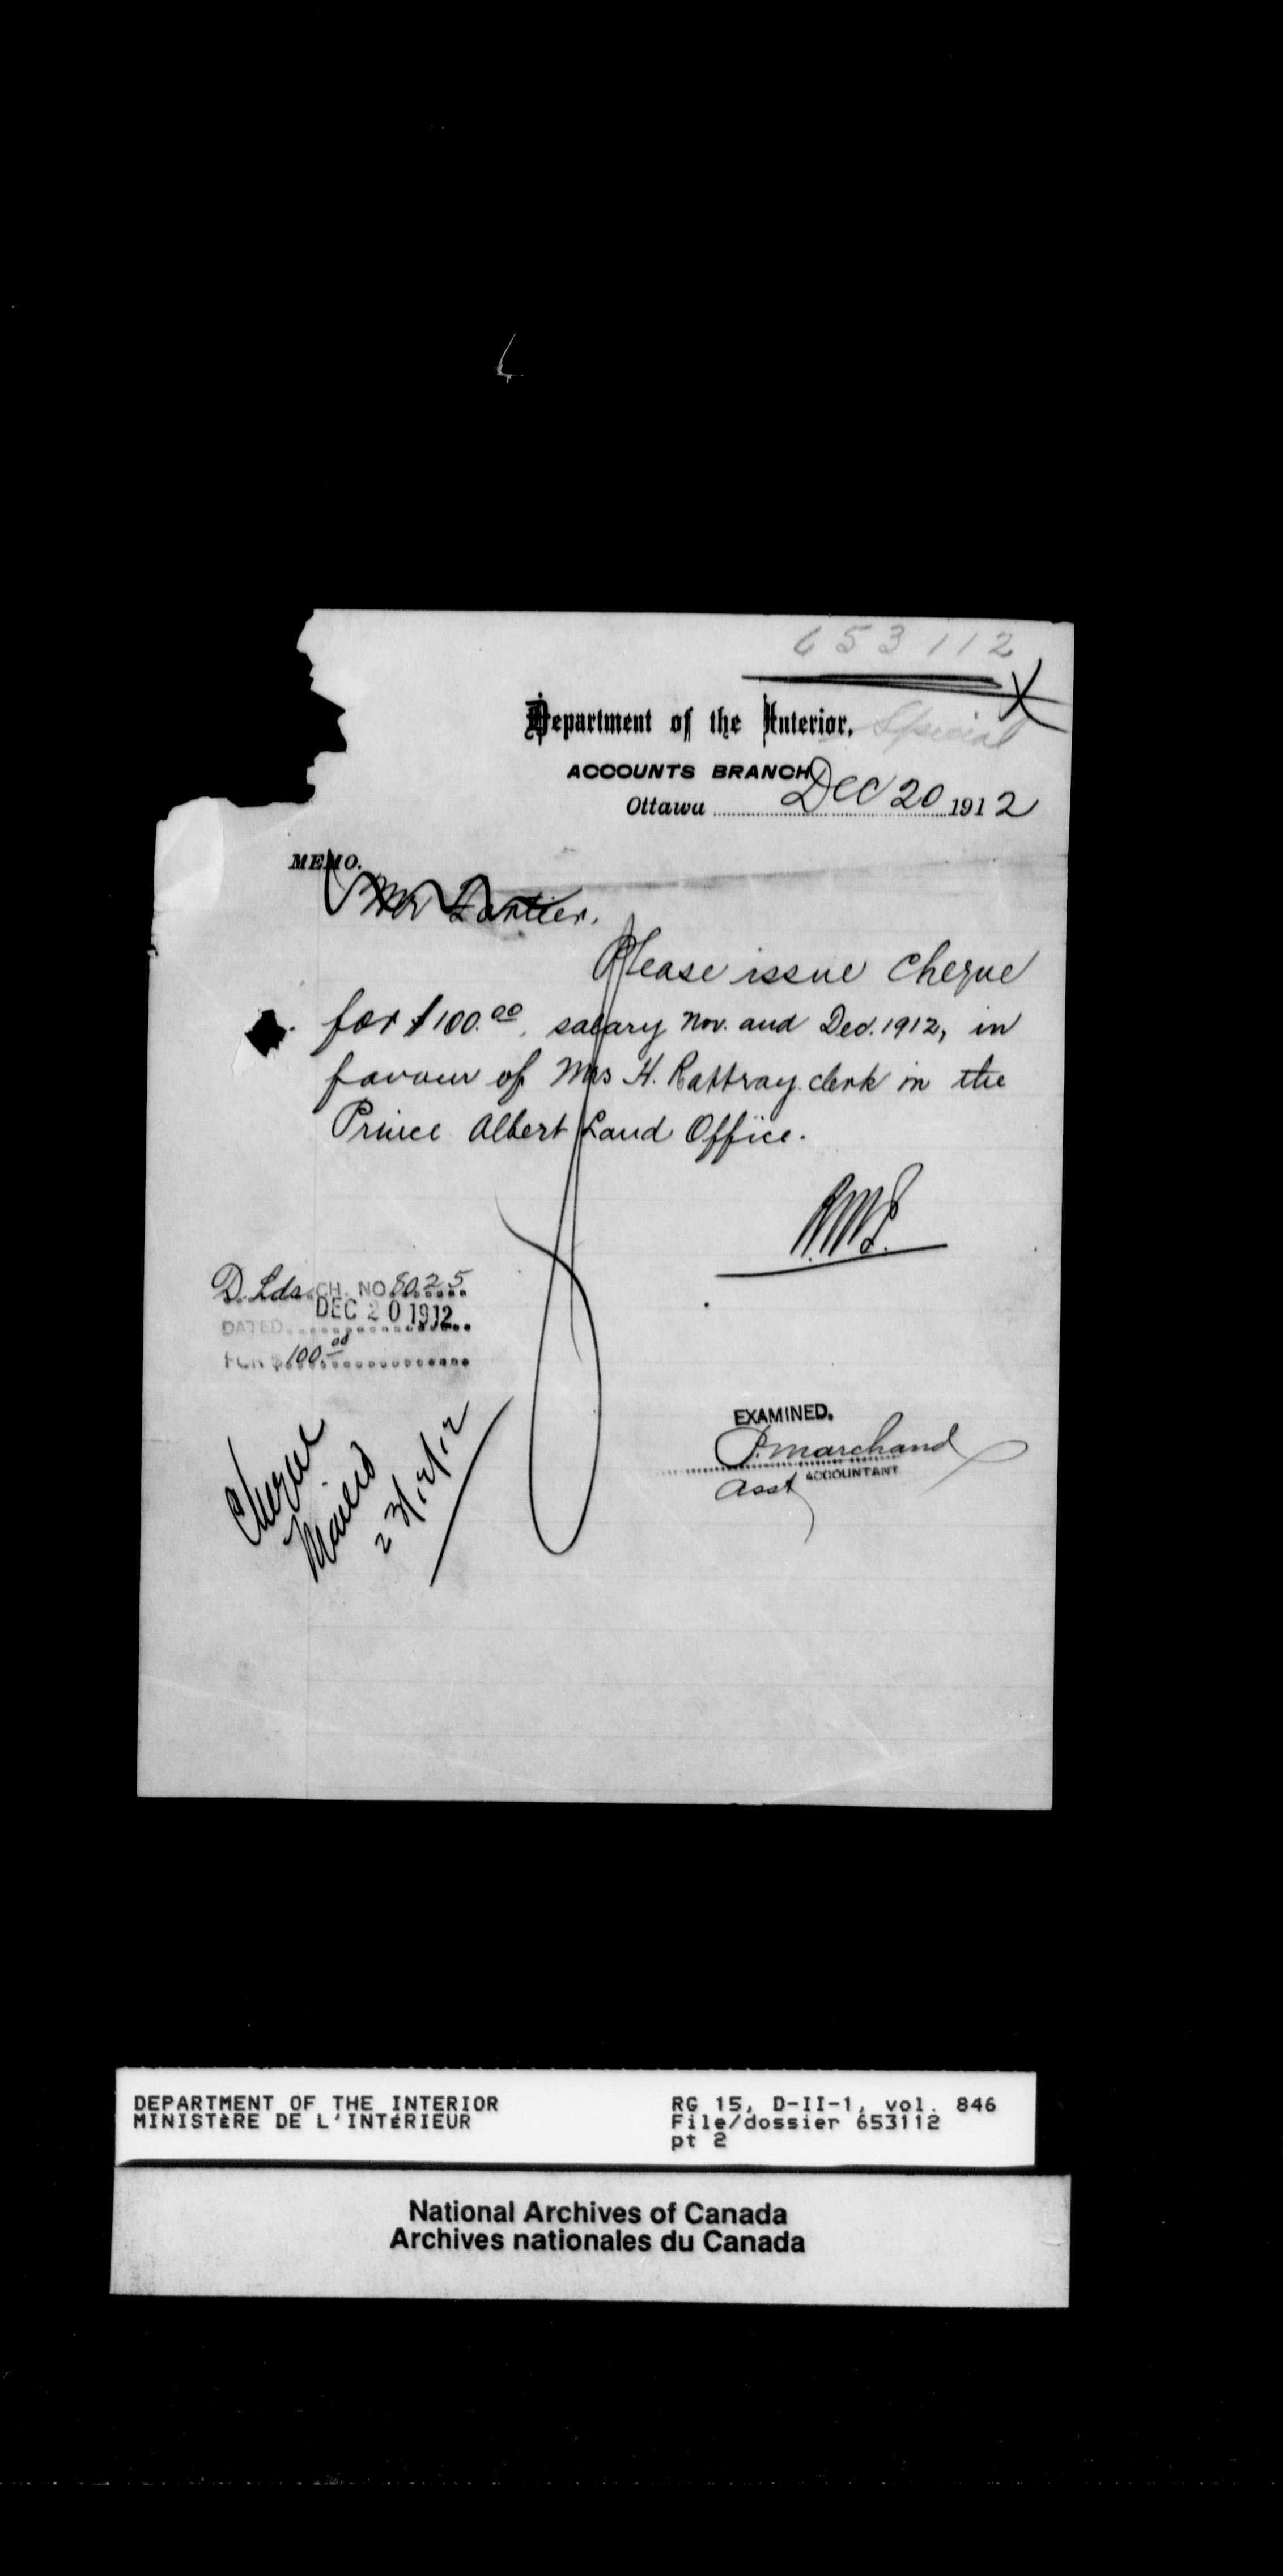 653112
Department of the Interior,
Special
ACCOUNTS BRANCH
Ottawa Dec 20 1912
MEMO.
Mr
Please issue cheque
for $100.00, salary Nov. and Dec. 1912, in
favour of Mrs H. Rattray clerk in the
Prince Albert Land Office.
D. Lds. CH. NO 8025
DATED DEC 20 1912
FOR $100.00
Cheque
Mailed
23/12/12
EXAMINED.
P. Marchand
Asst ACCOUNTANT
DEPARTMENT OF THE INTERIOR RG 15, D-II-1, vol. 846
MINISTÈRE DE L'INTÉRIEUR File/dossier 653112
pt 2
National Archives of Canada
Archives nationales du Canada